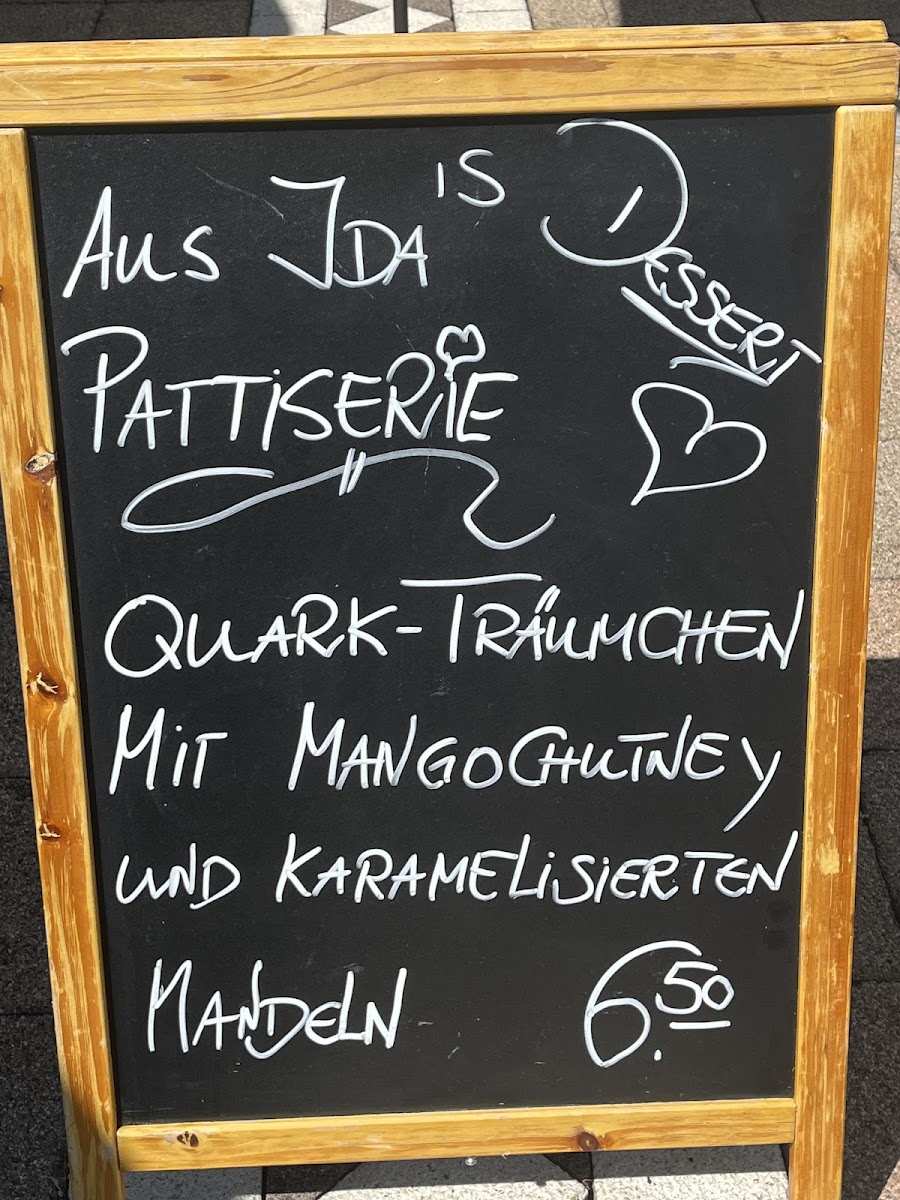 Aus IDA'S
DESSERT
PATTISERIE
QUARK-TRÄUMCHEN
MIT MANGOCHUTNEY
UND KARAMELISIERTEN
MANDELN 6.50